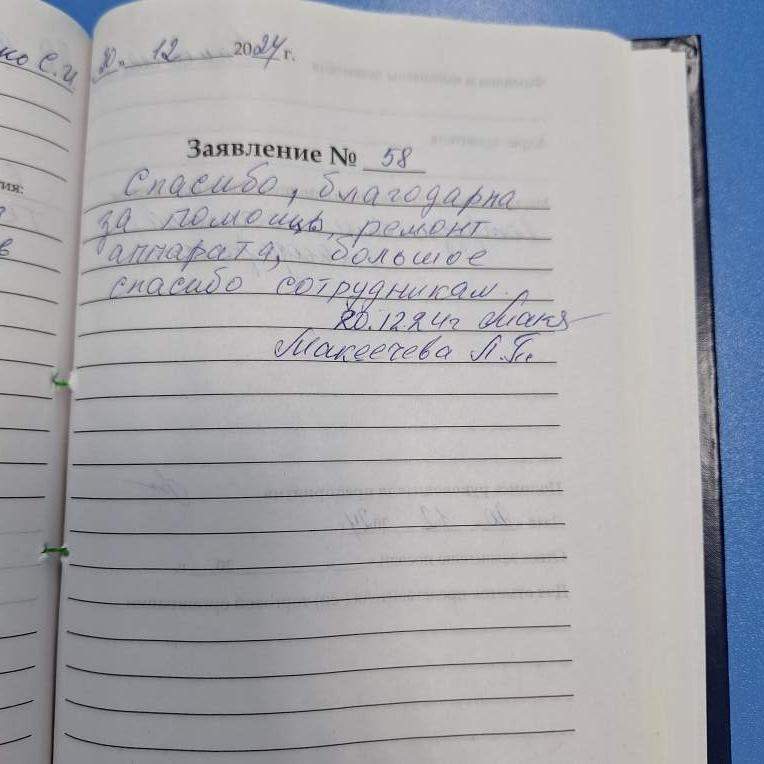 но С.И
20. 12 2024 г.
Заявление № 58
ия:
в
Спасибо, благодарна
за помощь, ремонт
аппарата, большое
спасибо сотрудникам.
20.12.24г Макя
Макеечева Л.П.